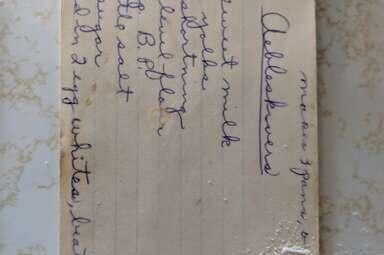 makes 3 pans,
Aebleskivers
sweet milk
yolks
shortning
level flour
B.P.
tle salt
sugar
d in 2 egg whites, beat